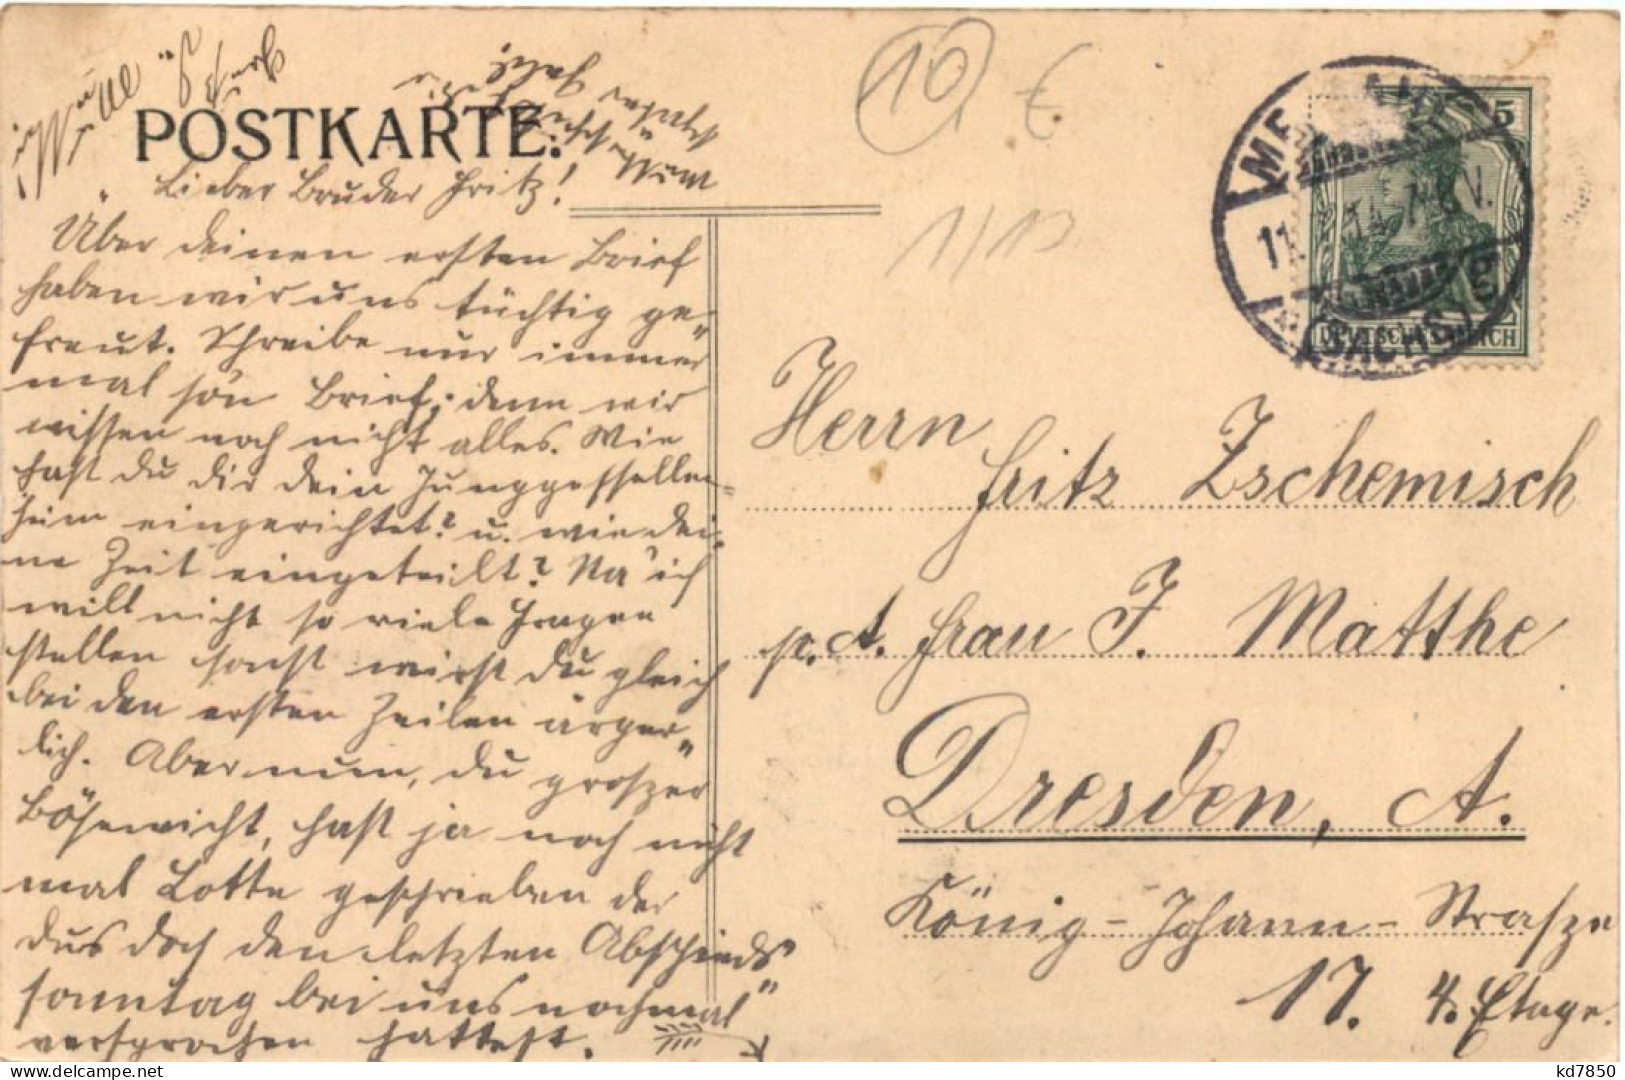 POSTKARTE.
10
€
1/13
5
11.
7-8 V.
(SACHS.)
DEUTSCHES REICH
Lieber Bruder Fritz!
Über deinen ersten Brief
haben wir uns tüchtig ge-
freut. Schreibe nur immer
mal so'n Brief, denn wir
wissen noch nicht alles. Wie
hast du dir dein Junggesellen-
heim eingerichtet? u. wie dei-
ne Zeit eingeteilt? Na ich
will nicht so viele Fragen
stellen sonst wirst du gleich
bei den ersten Zeilen ärger-
lich. Aber nun, du groszer
Bösewicht, hast ja noch nicht
mal Lotte geschrieben der
dus doch den letzten Abschieds
sonntag bei uns nochmal
versprochen hattest.
Herrn
Fritz Zschemisch
p. A. Frau J. Matthe
Dresden, A.
König-Johann-Strasze
17. 4. Etage.
kd7850